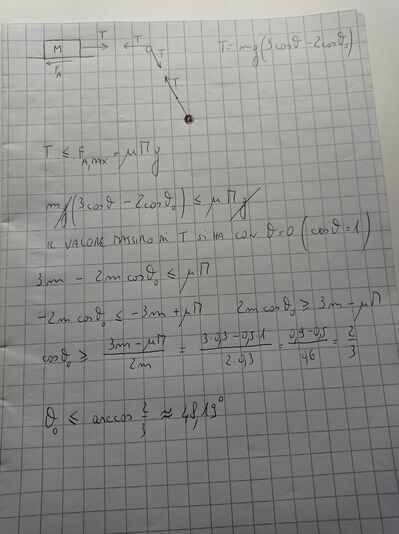 M T T T T = mg(3cosϑ - 2cosϑ₀)
F_A
T
T ≤ F_A,MAX = μMg
mg(3cosϑ - 2cosϑ₀) ≤ μMg
IL VALORE MASSIMO DI T SI HA CON ϑ=0 (cosϑ=1)
3m - 2m cosϑ₀ ≤ μM
-2m cosϑ₀ ≤ -3m + μM 2m cosϑ₀ ≥ 3m - μM
cosϑ₀ ≥ (3m - μM)/(2m) = (3·0,3 - 0,5·1)/(2·0,3) = (0,9 - 0,5)/(0,6) = 2/3
ϑ₀ ≤ arccos 2/3 ≈ 48,19°